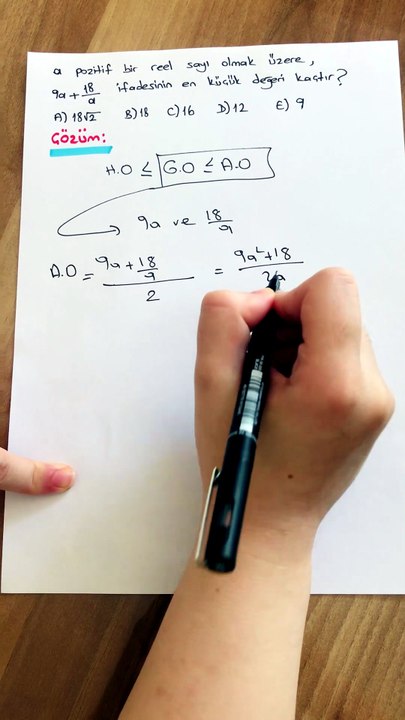 a pozitif bir reel sayı olmak üzere,
9a + 18/a ifadesinin en küçük değeri kaçtır?
A) 18√2 B) 18 C) 16 D) 12 E) 9
Çözüm:
H.O ≤ G.O ≤ A.O
9a ve 18/a
A.O = (9a + 18/a)/2 = (9a² + 18)/2a